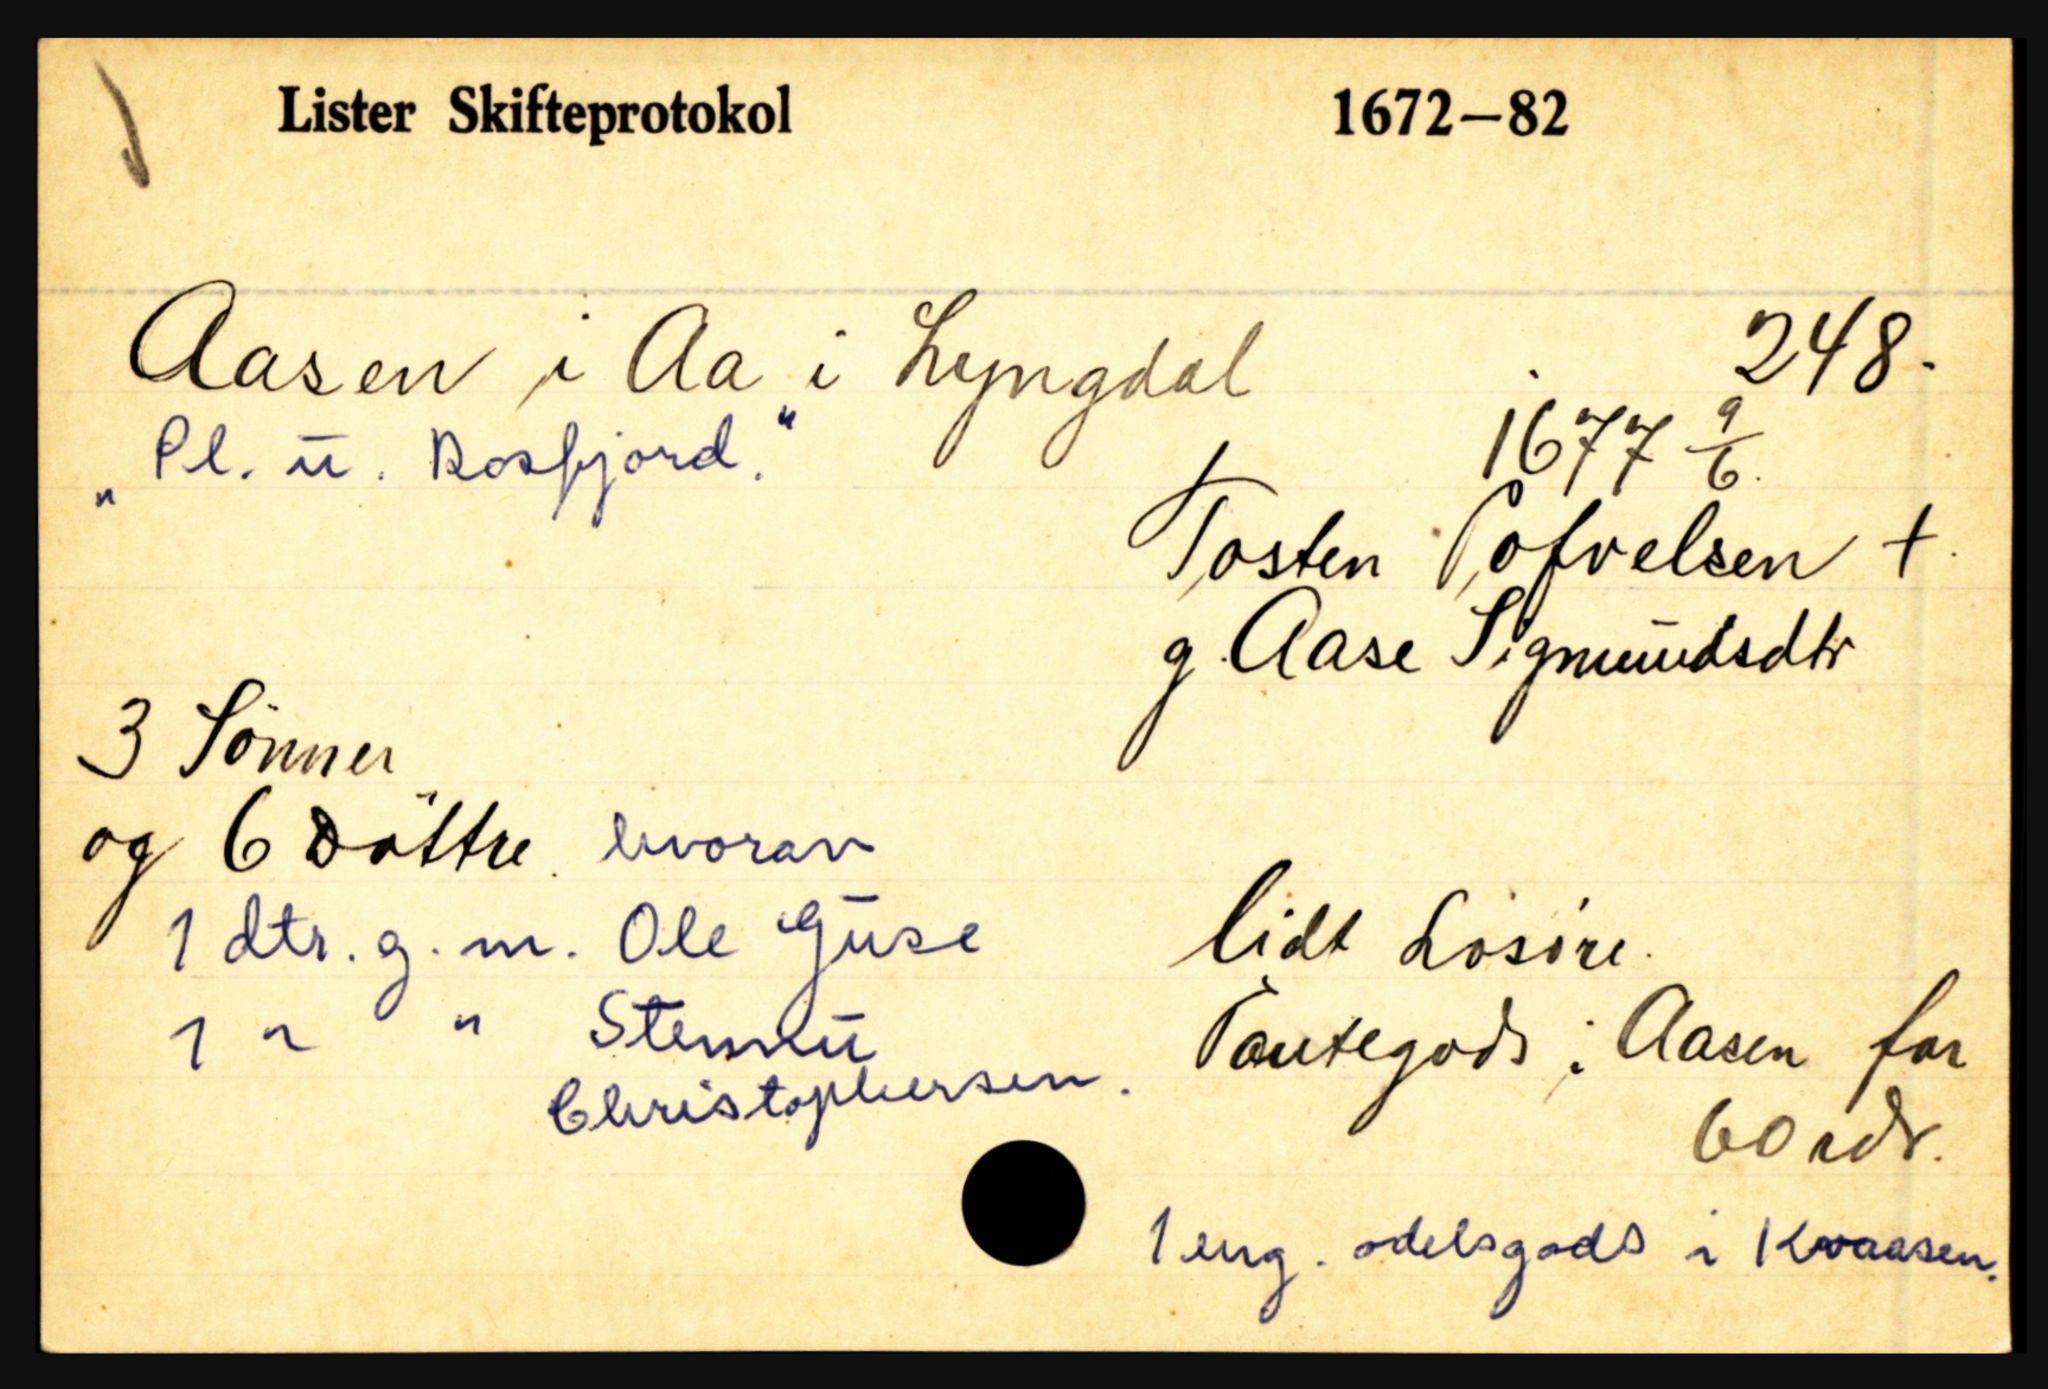 Lister Skifteprotokol 1672–82
Aasen i Aa i Lyngdal 248.
"Pl. ū. Rosfjord." 1677 9/6.
Tosten Pofvelsen +
g. Aase Sigmūndsdtr
3 Sönner
og 6 Döttre hvorav
1 dtr. g. m. Ole Gūse lidt Losöre.
1 " " Stennū Pantegods i Aasen for
Christophersen. 60 rdr.
1 eng. odelsgods i Kvaasen.